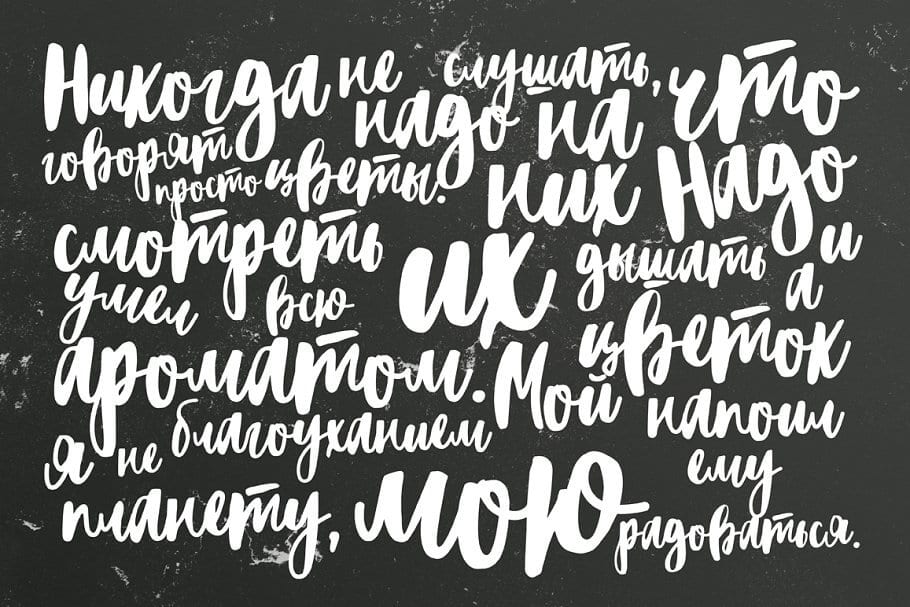 Никогда не слушать, что
говорят надо на
просто цветы. них Надо
смотреть их дышать и
умел всю а
ароматом. Мой цветок
я не благоуханием напоил
ему
планету, мою радоваться.